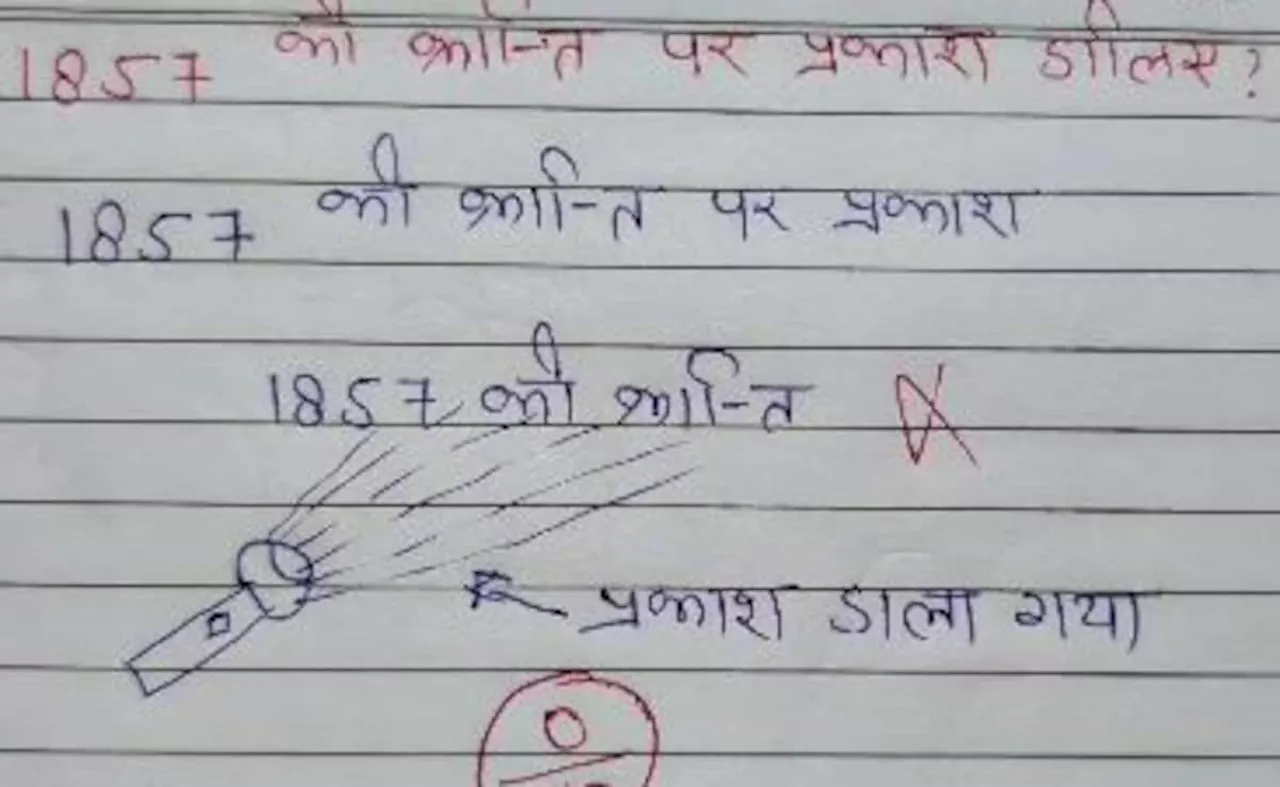 1857 की क्रान्ति पर प्रकाश डालिए?
1857 की क्रान्ति पर प्रकाश
1857 की क्रान्ति
प्रकाश डाला गया
0